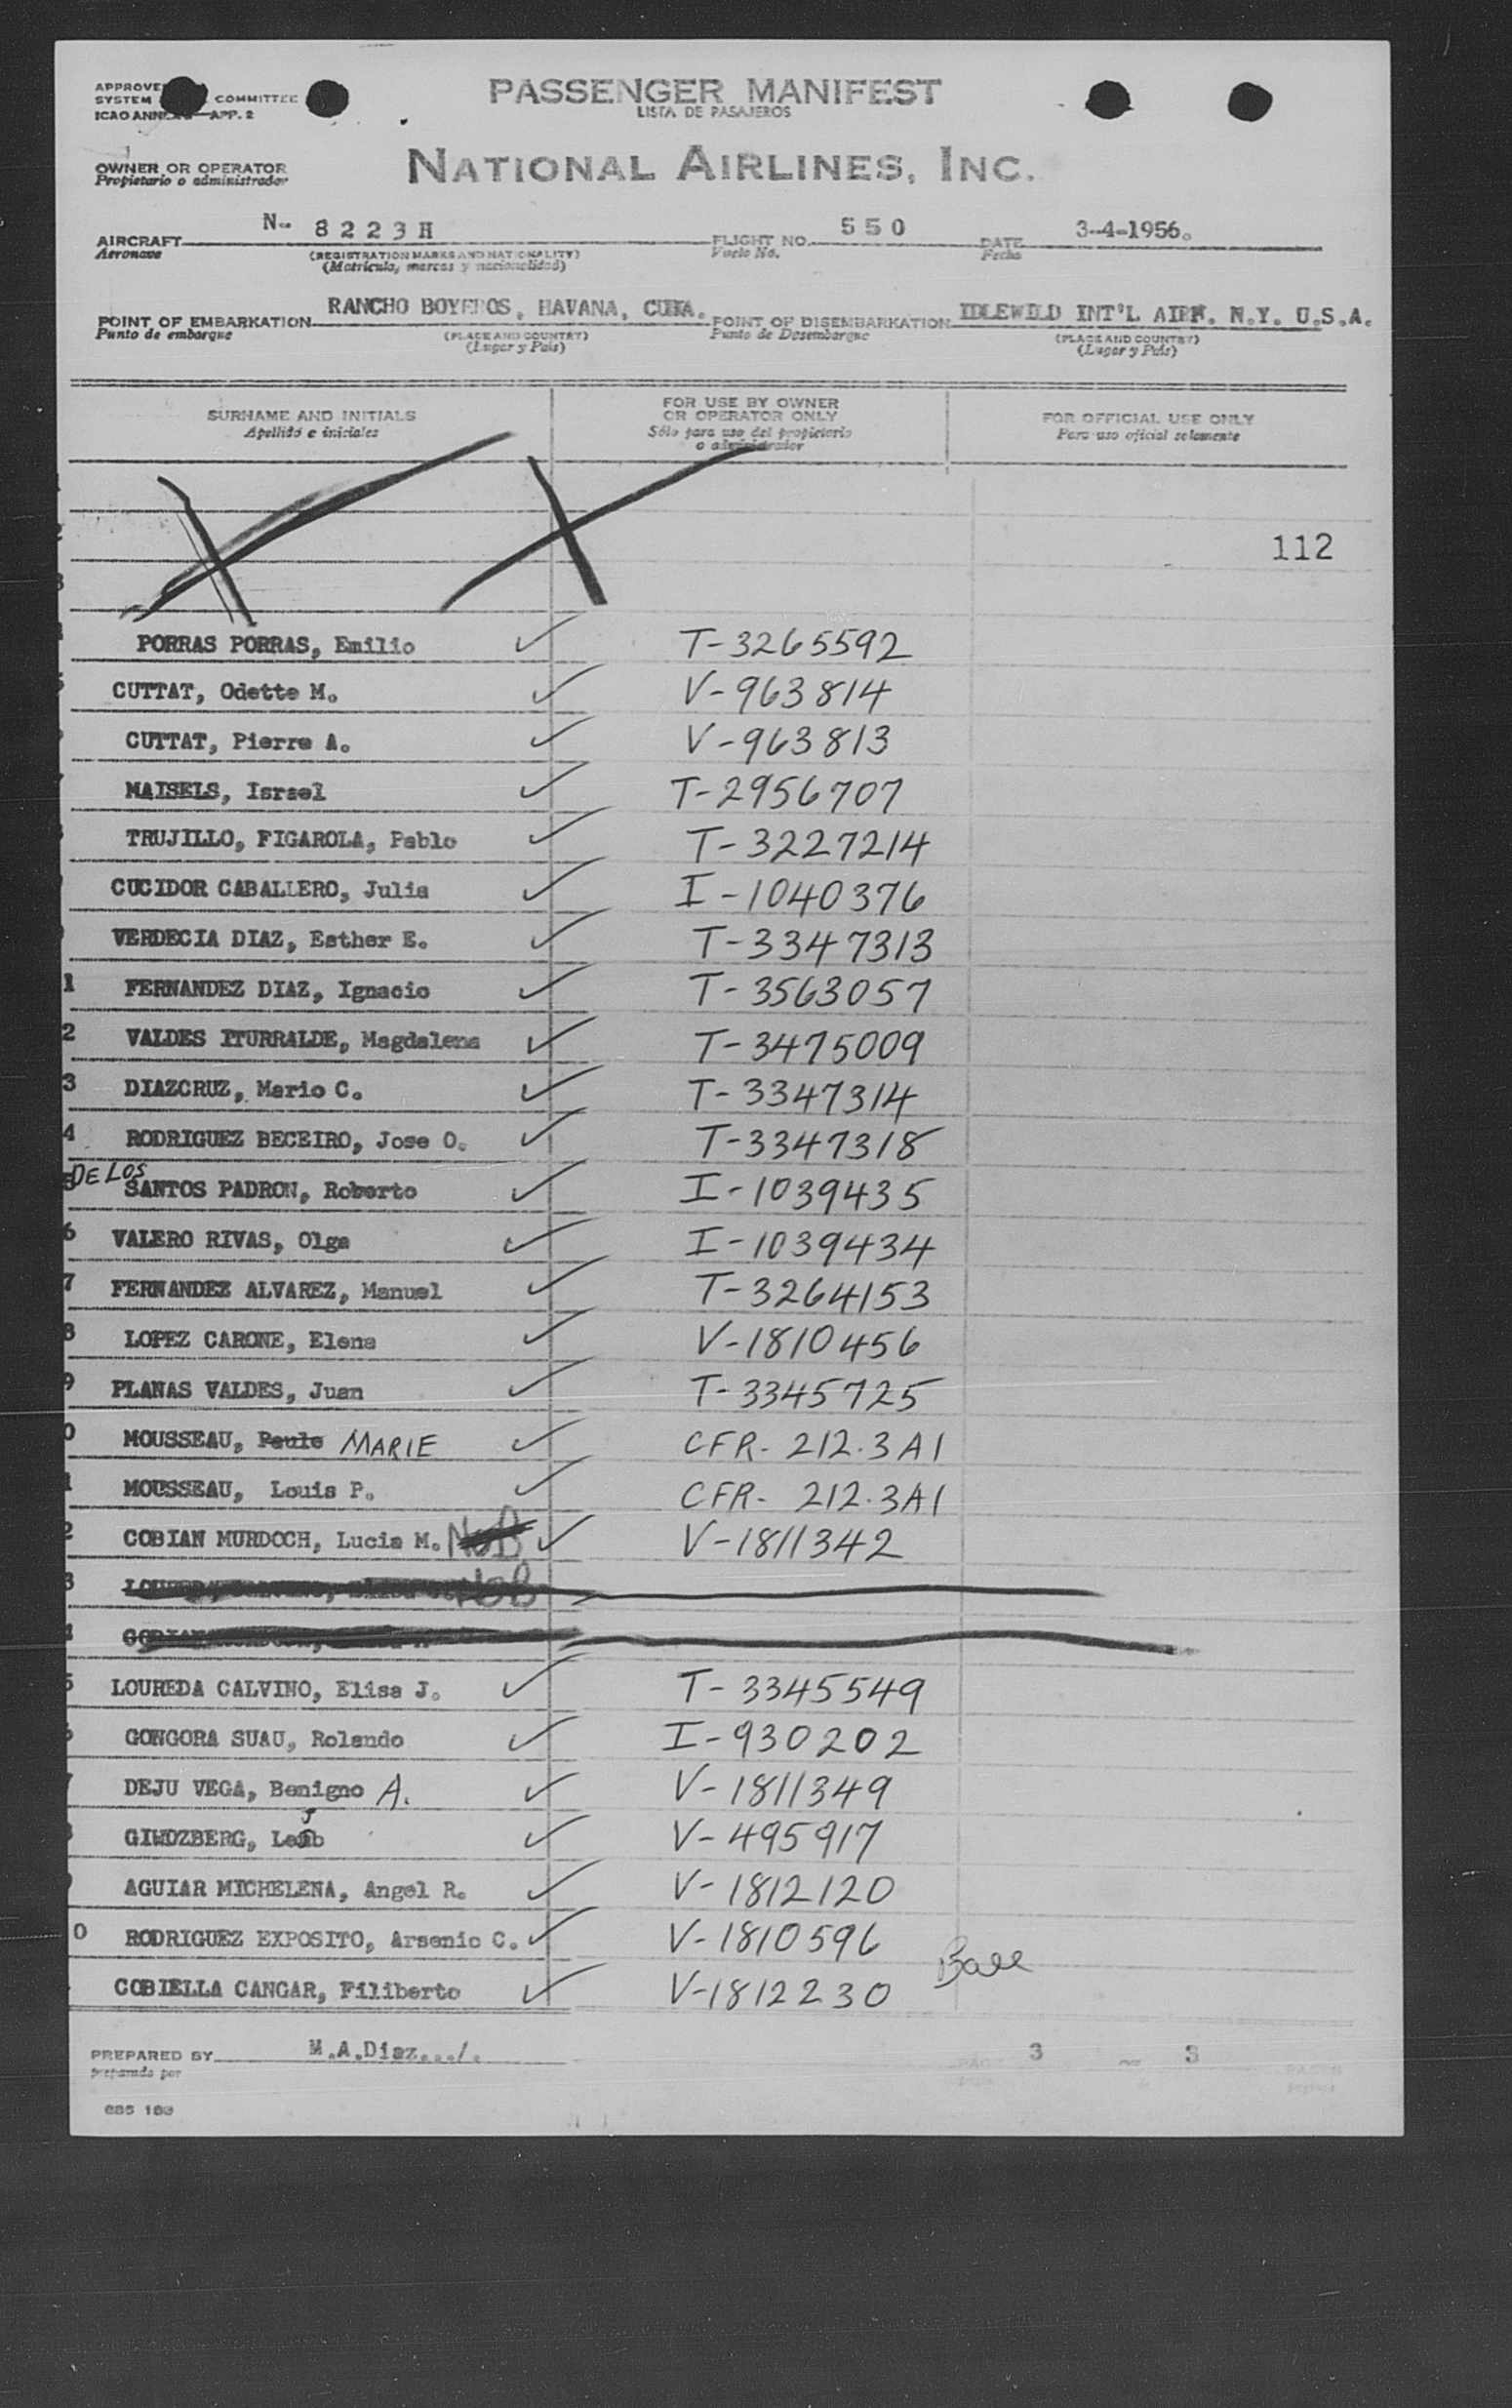 PASSENGER MANIFEST
LISTA DE PASAJEROS
SYSTEM COMMITTEE
ICAO APP. 2
OWNER OR OPERATOR
Propietario o administrador
NATIONAL AIRLINES, INC.
AIRCRAFT N- 8223H FLIGHT NO. 550 DATE 3-4-1956.
Aeronave (REGISTRATION MARKS AND NATIONALITY) Vuelo No. Fecha
(Matricula, marcas y nacionalidad)
POINT OF EMBARKATION RANCHO BOYEROS, HAVANA, CUBA. POINT OF DISEMBARKATION IDLEWILD INT'L AIRP. N.Y. U.S.A.
Punto de embarque (PLACE AND COUNTRY) Punto de Desembarque (PLACE AND COUNTRY)
(Lugar y País) (Lugar y País)
SURNAME AND INITIALS FOR USE BY OWNER OR OPERATOR ONLY FOR OFFICIAL USE ONLY
Apellido e iniciales Sólo para uso del propietario o administrador Para uso oficial solamente
112
PORRAS PORRAS, Emilio ✓ T-3265592
CUTTAT, Odette M. ✓ V-963814
CUTTAT, Pierre A. ✓ V-963813
MAISELS, Israel ✓ T-2956707
TRUJILLO, FIGAROLA, Pablo ✓ T-3227214
CUCIDOR CABALLERO, Julia ✓ I-1040376
VERDECIA DIAZ, Esther E. ✓ T-3347313
1 FERNANDEZ DIAZ, Ignacio ✓ T-3563057
2 VALDES ITURRALDE, Magdalena ✓ T-3475009
3 DIAZCRUZ, Mario C. ✓ T-3347314
4 RODRIGUEZ BECEIRO, Jose O. ✓ T-3347318
5 DE LOS SANTOS PADRON, Roberto ✓ I-1039435
6 VALERO RIVAS, Olga ✓ I-1039434
7 FERNANDEZ ALVAREZ, Manuel ✓ T-3264153
8 LOPEZ CARONE, Elena ✓ V-1810456
9 PLANAS VALDES, Juan ✓ T-3345725
0 MOUSSEAU, Paule MARIE ✓ CFR- 212.3A1
1 MOUSSEAU, Louis P. ✓ CFR- 212.3A1
2 COBIAN MURDOCH, Lucia M. NOB ✓ V-1811342
3 NOB
5 LOUREDA CALVINO, Elisa J. ✓ T-3345549
GONGORA SUAU, Rolando ✓ I-930202
DEJU VEGA, Benigno A. ✓ V-1811349
GIWOZBERG, Lejb ✓ V-495917
AGUIAR MICHELENA, Angel R. ✓ V-1812120
0 RODRIGUEZ EXPOSITO, Arsenio C. ✓ V-1810596
COBIELLA CANGAR, Filiberto ✓ V-1812230
PREPARED BY M.A.Diaz.../. 3 3
preparado por